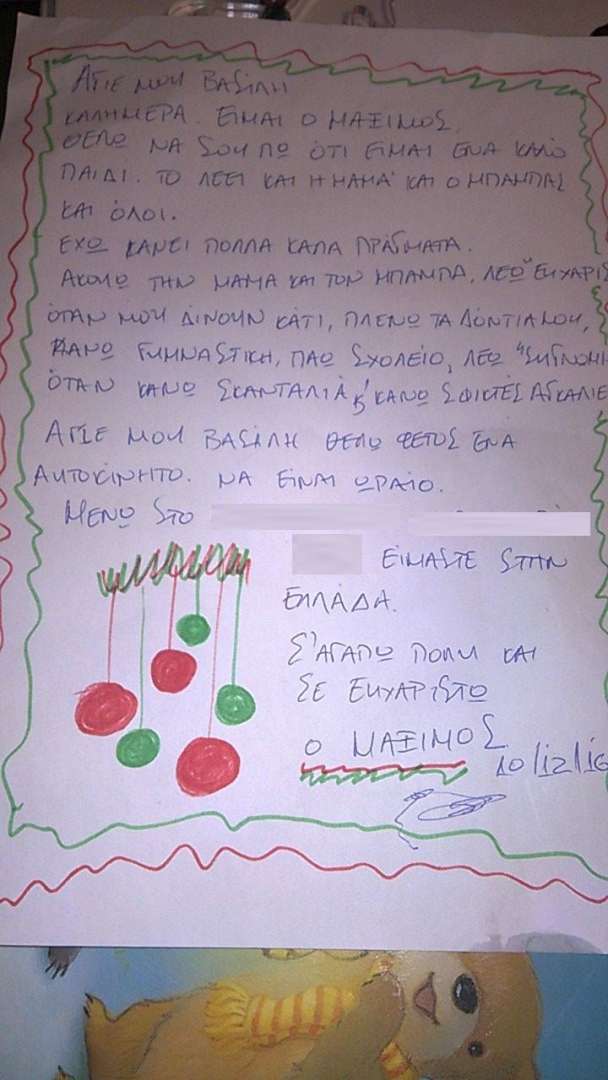 ΑΓΙΕ ΜΟΥ ΒΑΣΙΛΗ
ΚΑΛΗΜΕΡΑ. ΕΙΜΑΙ Ο ΜΑΞΙΜΟΣ.
ΘΕΛΩ ΝΑ ΣΟΥ ΠΩ ΌΤΙ ΕΙΜΑΙ ΕΝΑ ΚΑΛΟ
ΠΑΙΔΙ. ΤΟ ΛΕΕΙ ΚΑΙ Η ΜΑΜΑ ΚΑΙ Ο ΜΠΑΜΠΑΣ
ΚΑΙ ΌΛΟΙ.
ΕΧΩ ΚΑΝΕΙ ΠΟΛΛΑ ΚΑΛΑ ΠΡΑΓΜΑΤΑ.
ΑΚΟΥΩ ΤΗΝ ΜΑΜΑ ΚΑΙ ΤΟΝ ΜΠΑΜΠΑ, ΛΕΩ "ΕΥΧΑΡΙΣ
ΌΤΑΝ ΜΟΥ ΔΙΝΟΥΝ ΚΑΤΙ, ΠΛΕΝΩ ΤΑ ΔΟΝΤΙΑ ΜΟΥ,
ΚΑΝΩ ΓΥΜΝΑΣΤΙΚΗ, ΠΑΩ ΣΧΟΛΕΙΟ, ΛΕΩ "ΣΥΓΝΩΜΗ
ΌΤΑΝ ΚΑΝΩ ΣΚΑΝΤΑΛΙΑ Κ' ΚΑΝΩ ΣΦΙΚΤΈΣ ΑΓΚΑΛΙΕ
ΑΓΙΕ ΜΟΥ ΒΑΣΙΛΗ ΘΕΛΩ ΦΕΤΟΣ ΕΝΑ
ΑΥΤΟΚΙΝΗΤΟ. ΝΑ ΕΙΝΑΙ ΩΡΑΙΟ.
ΜΕΝΩ ΣΤΟ
ΕΙΜΑΣΤΕ ΣΤΗΝ
ΕΛΛΆΔΑ.
Σ'ΑΓΑΠΩ ΠΟΛΥ ΚΑΙ
ΣΕ ΕΥΧΑΡΙΣΤΩ
Ο ΜΑΞΙΜΟΣ
10/12/16